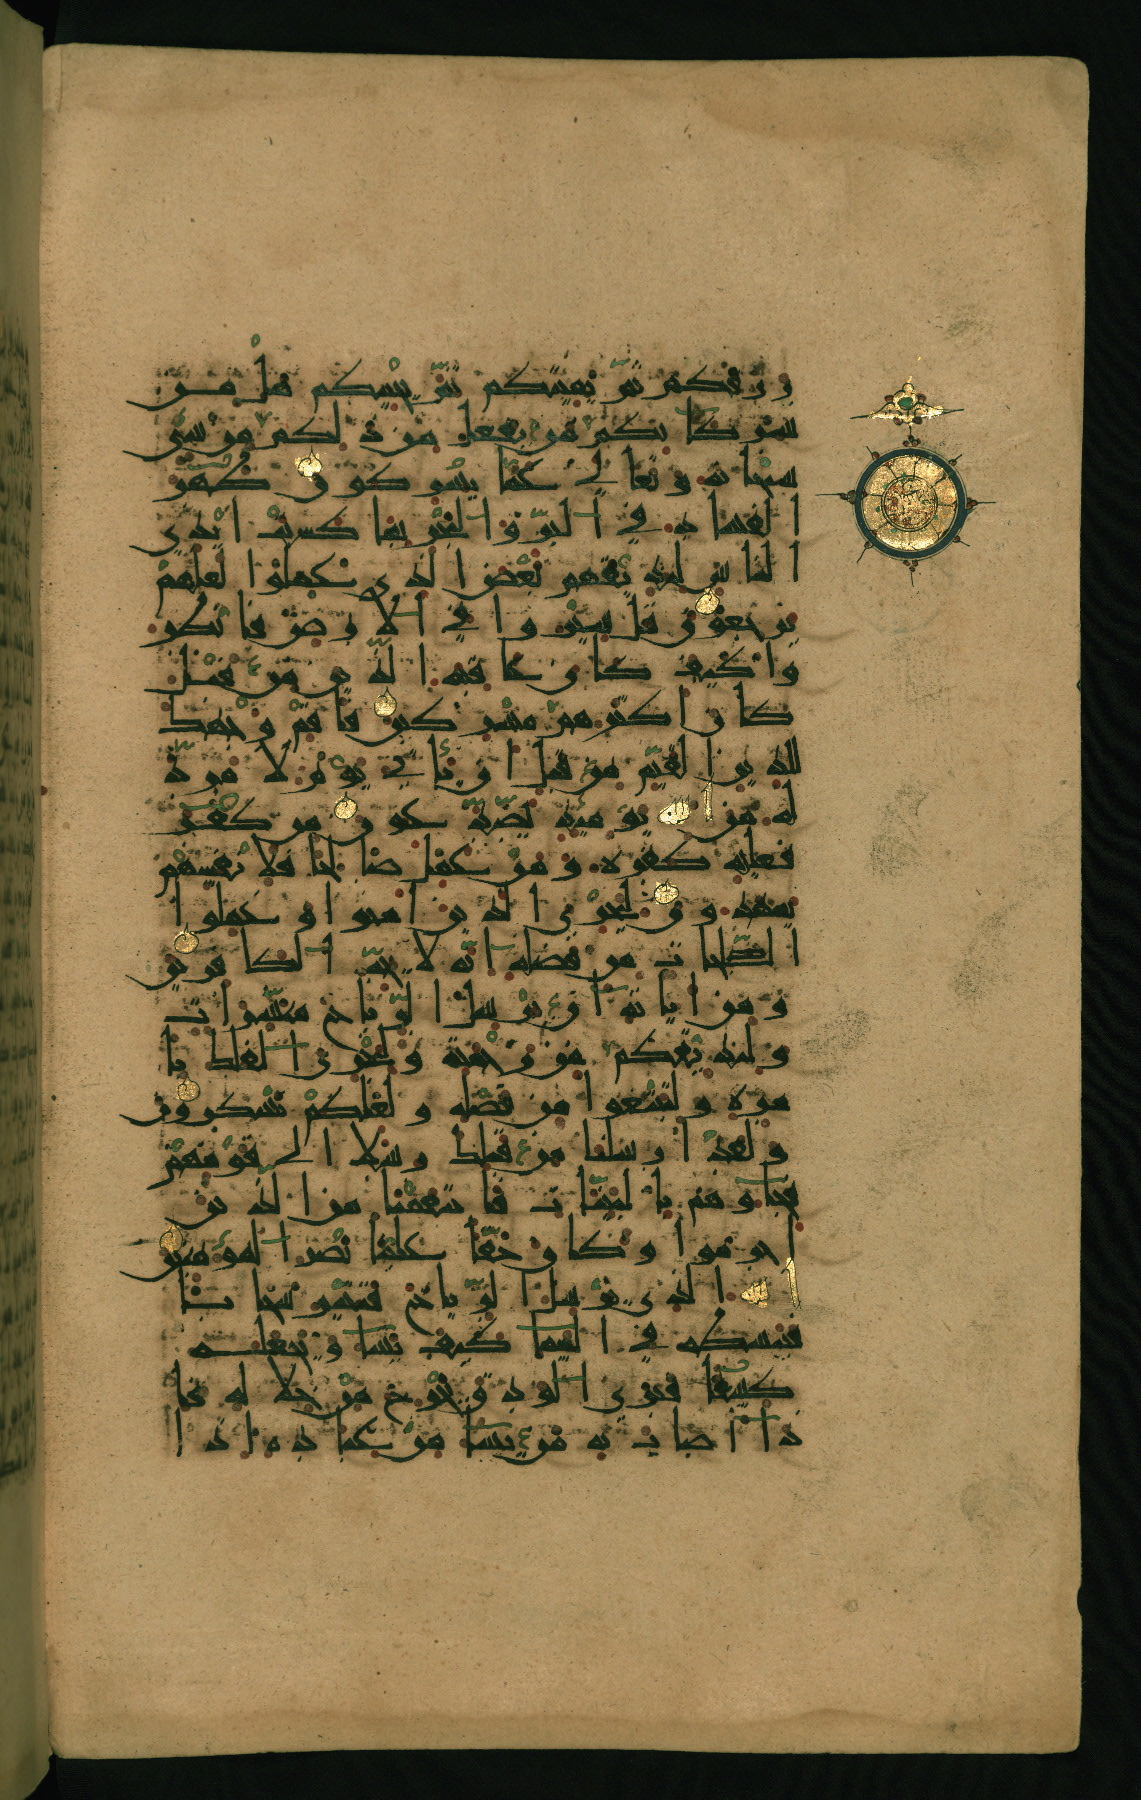 رزقكم ثم يميتكم ثم يحييكم هل من
شركائكم من يفعل من ذلكم من شي
سبحانه وتعالى عما يشركون ظهر
الفساد في البر والبحر بما كسبت ايدي
الناس ليذيقهم بعض الذي عملوا لعلهم
يرجعون قل سيروا في الارض فانظر
وا كيف كان عاقبة الذين من قبل
كان اكثرهم مشركين فاقم وجهك
للدين القيم من قبل ان ياتي يوم لا مرد
له من الله يومئذ يصدعون من كفر
فعليه كفره ومن عمل صالحا فلانفسهم
يمهدون ليجزي الذين امنوا وعملوا
الصالحات من فضله انه لا يحب الكافرين
ومن اياته ان يرسل الرياح مبشرات
وليذيقكم من رحمته ولتجري الفلك با
مره ولتبتغوا من فضله ولعلكم تشكرون
ولقد ارسلنا من قبلك رسلا الى قومهم
فجاوهم بالبينات فانتقمنا من الذين
اجرموا وكان حقا علينا نصر المومنين
الله الذي يرسل الرياح فتثير سحابا
فيبسطه في السما كيف يشا ويجعله
كسفا فترى الودق يخرج من خلاله فا
ذا اصاب به من يشا من عباده اذا